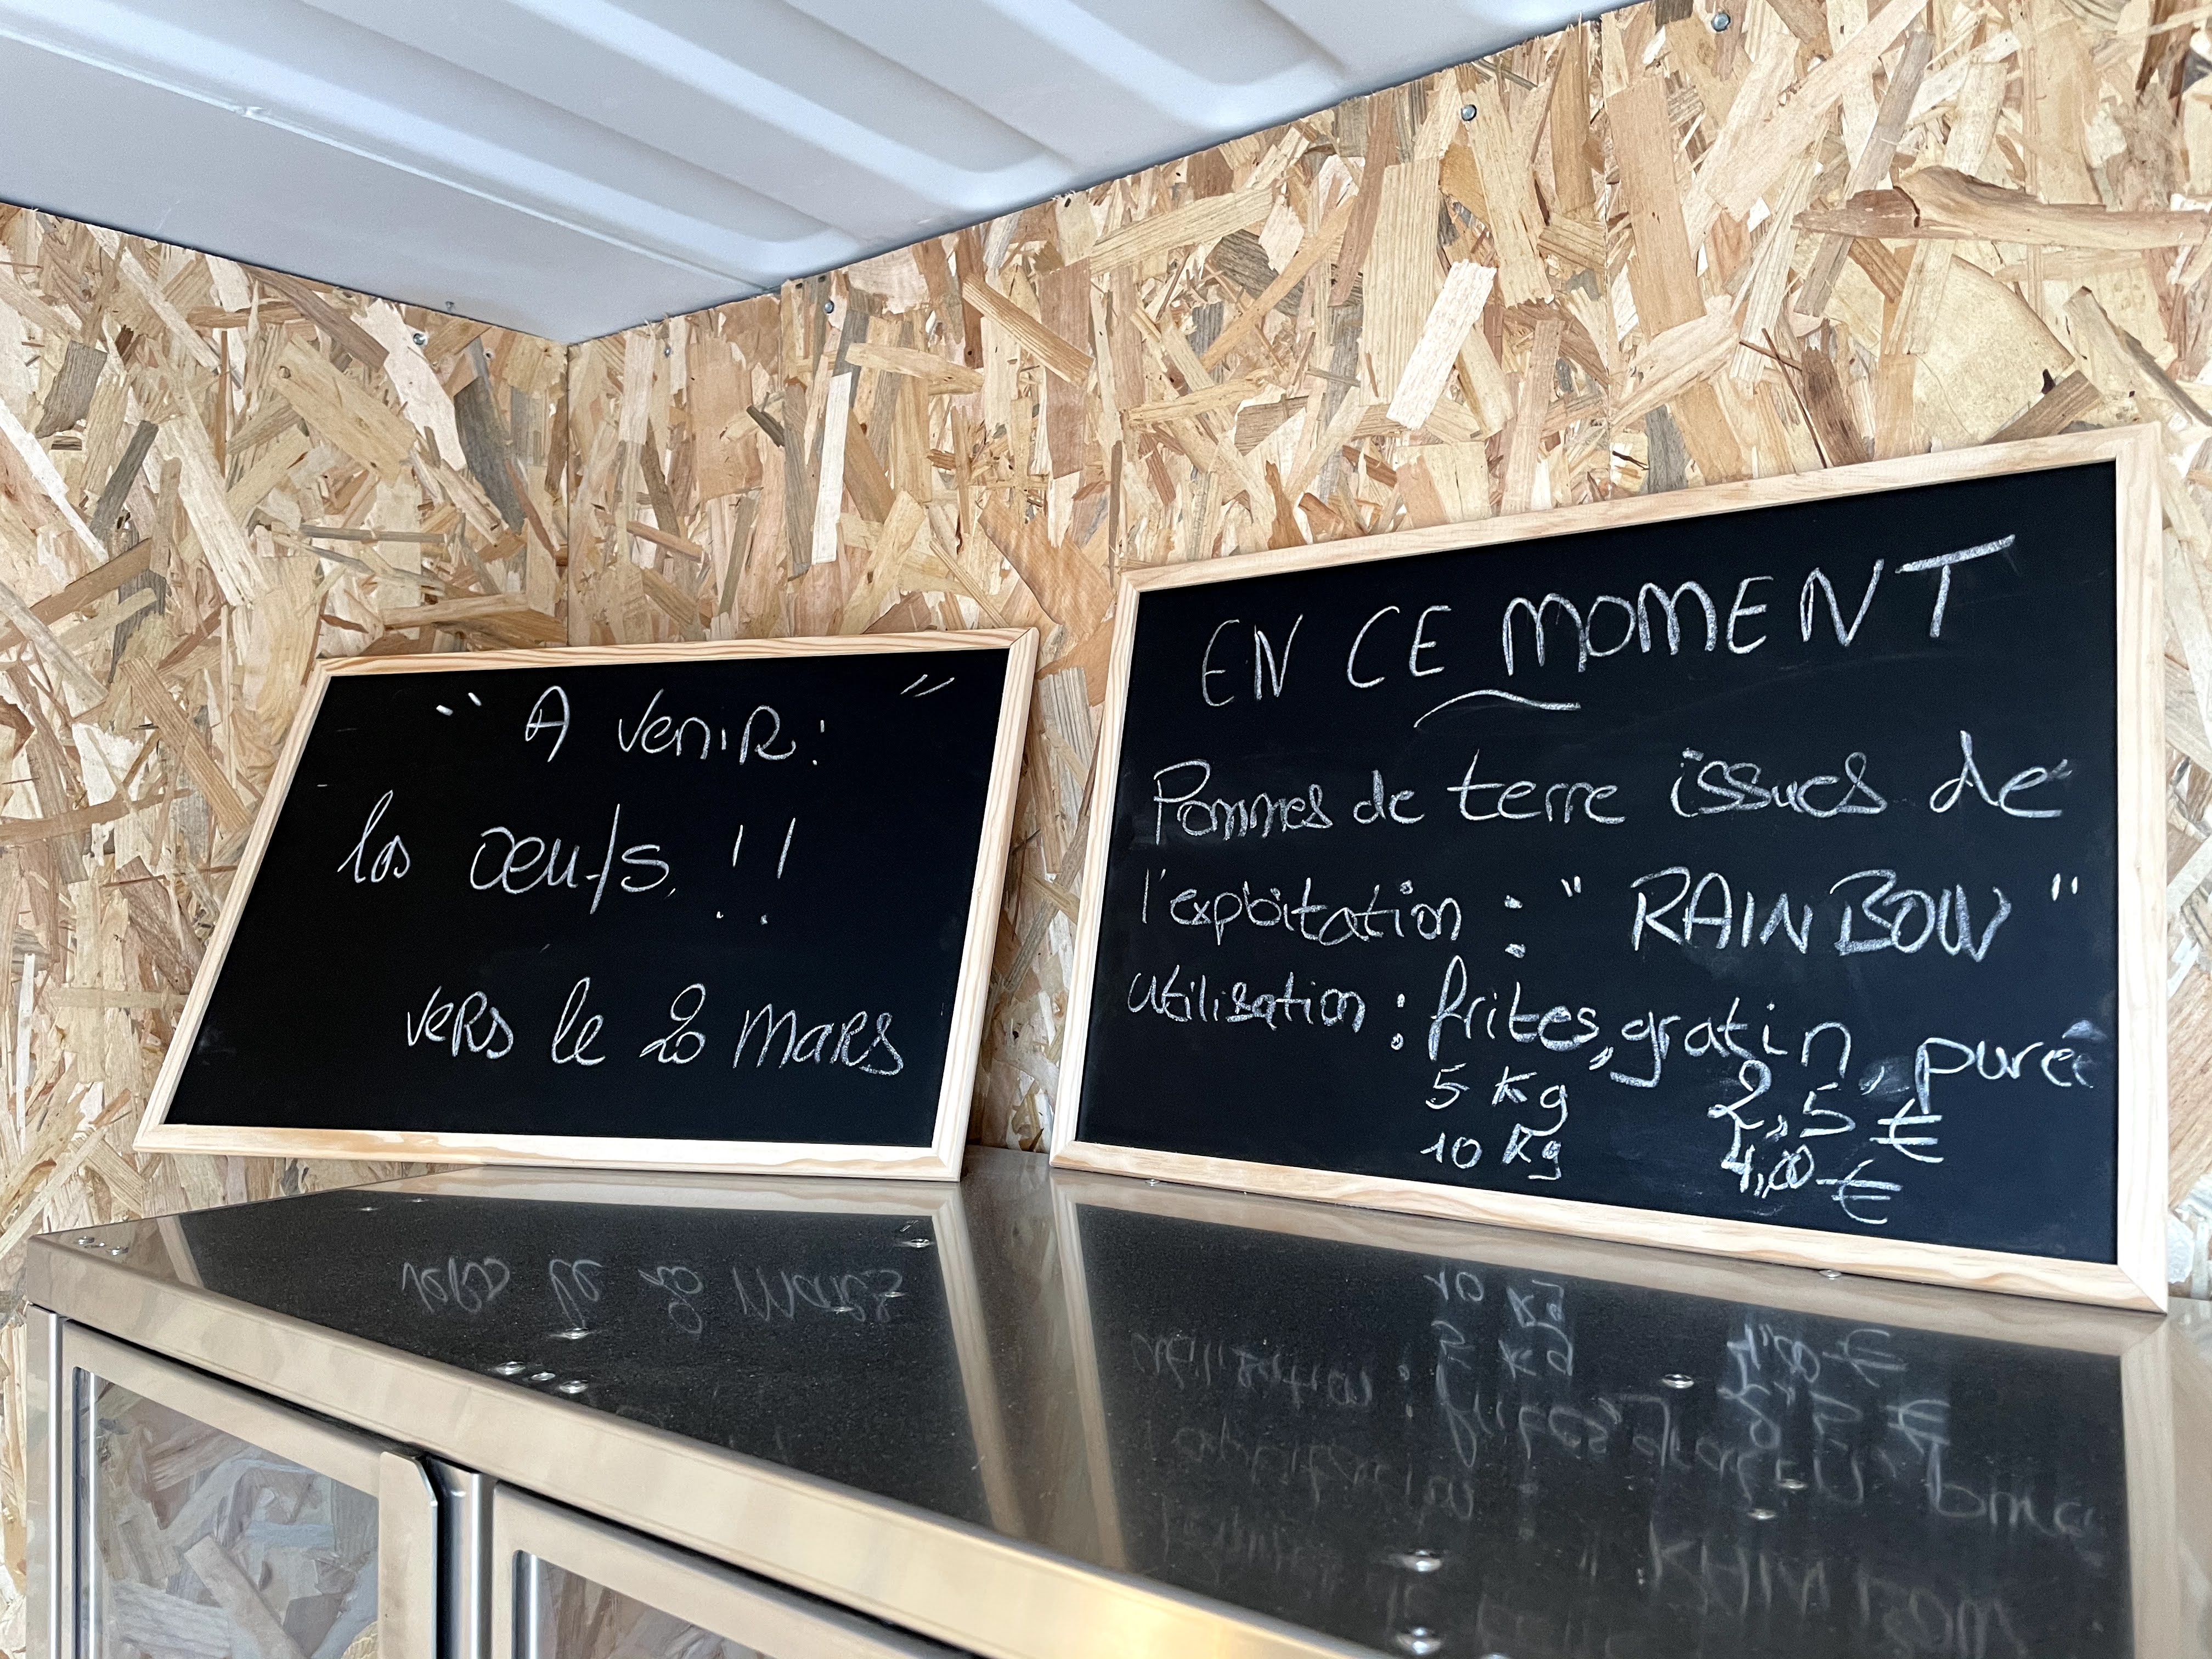 " A venir : "
les œufs !!
vers le 20 mars
EN CE MOMENT
Pommes de terre issues de
l'exploitation : " RAINBOW "
Utilisation : frites, gratin, purée
5 Kg 2,5 €
10 Kg 4,00 €